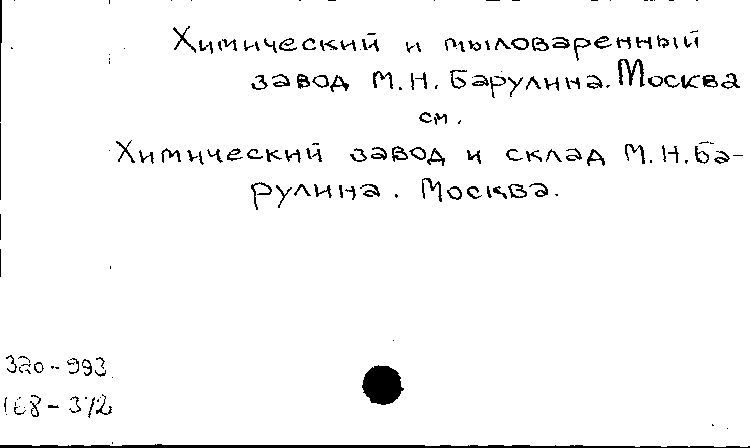 Химический и мыловаренный
завод М.Н. Барулина. Москва
см.
Химический завод и склад М.Н. Ба-
рулина. Москва.
320-993
168-372